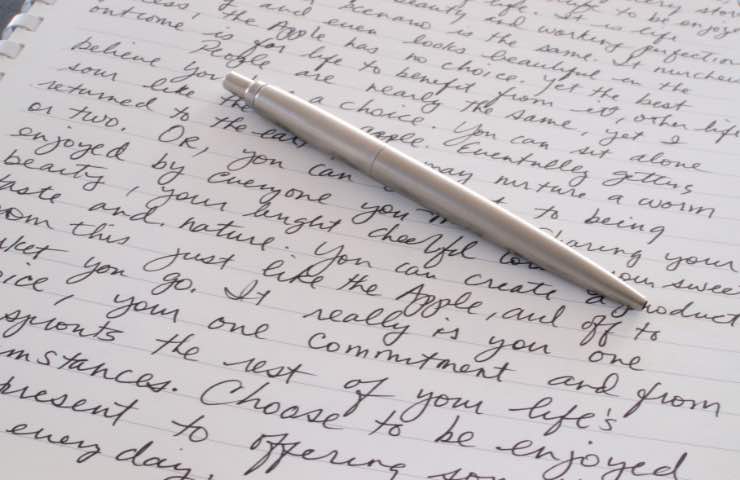 every
life. It is life to be
beauty and working perfection
Scenario is the same. It
and even looks beautiful in the
the Apple has no choice. Yet the best
outcome is for life to benefit from it, other life
People are nearly the same, yet I
believe you is a choice. You can sit alone
sour like apple. Eventually getting
returned to the may nurture a worm
or two. Or, you can to being
enjoyed by everyone you Sharing your
beauty, your bright cheerful your sweet
taste and nature. You can create a product
om this just like the Apple, and off to
rket you go. It really is you one
oice, your one commitment and from
sprouts the rest of your life's
mstances. Choose to be enjoyed
present to offering
every day.